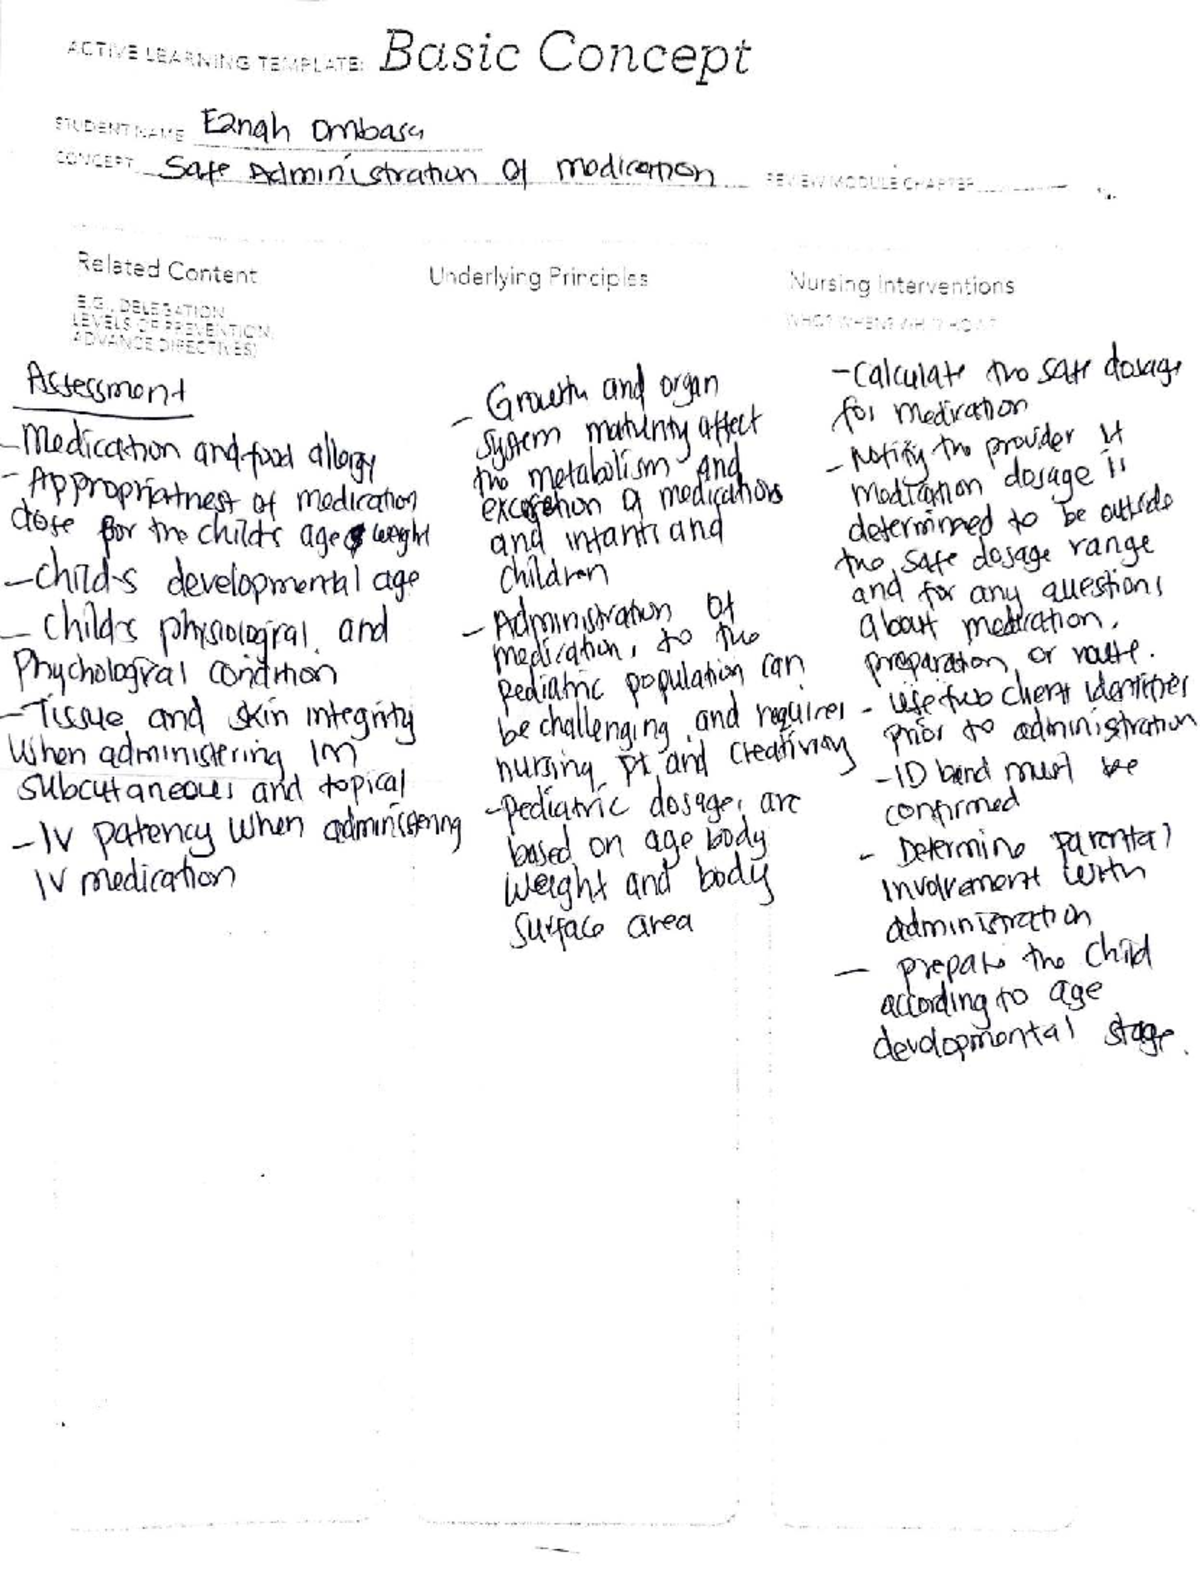 ACTIVE LEARNING TEMPLATE: Basic Concept
STUDENT NAME Ezngh Ombasa
CONCEPT Safe Administration of medication REVIEW MODULE CHAPTER
Related Content
E.G., DELEGATION,
LEVELS OF PREVENTION,
ADVANCE DIRECTIVES)
Assessment
- Medication and food allergy
- Appropriatnest of medication
dose for the child's age & weight
- Child's developmental age
- Child's physiological and
Phychological condition
- Tissue and skin integrity
when administering IM
subcutaneous and topical
- IV patency when administering
IV medication
Underlying Principles
- Growth and organ
system maturity affect
the metabolism and
excretion of medications
and infants and
children
- Administration of
medications to the
pediatric population can
be challenging and requires
nursing pt and creativity
- Pediatric dosages are
based on age body
weight and body
surface area
Nursing Interventions
WHO? WHEN? WHY? HOW?
- Calculate the safe dosage
for medication
- Notify the provider if
medication dosage is
determined to be outside
the safe dosage range
and for any questions
about medication,
preparation, or route.
- use two client identifiers
prior to administration
- ID band must be
confirmed
- Determine parental
involvement with
administration
- prepare the child
according to age
developmental stage.